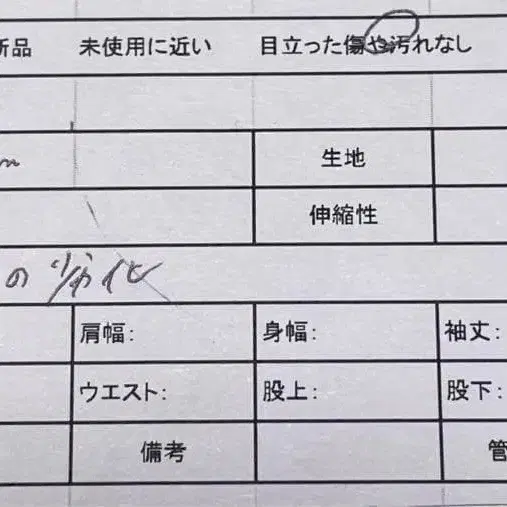 新品 未使用に近い 目立った傷や汚れなし
生地
伸縮性
の劣化
肩幅: 身幅: 袖丈:
ウエスト: 股上: 股下:
備考 管